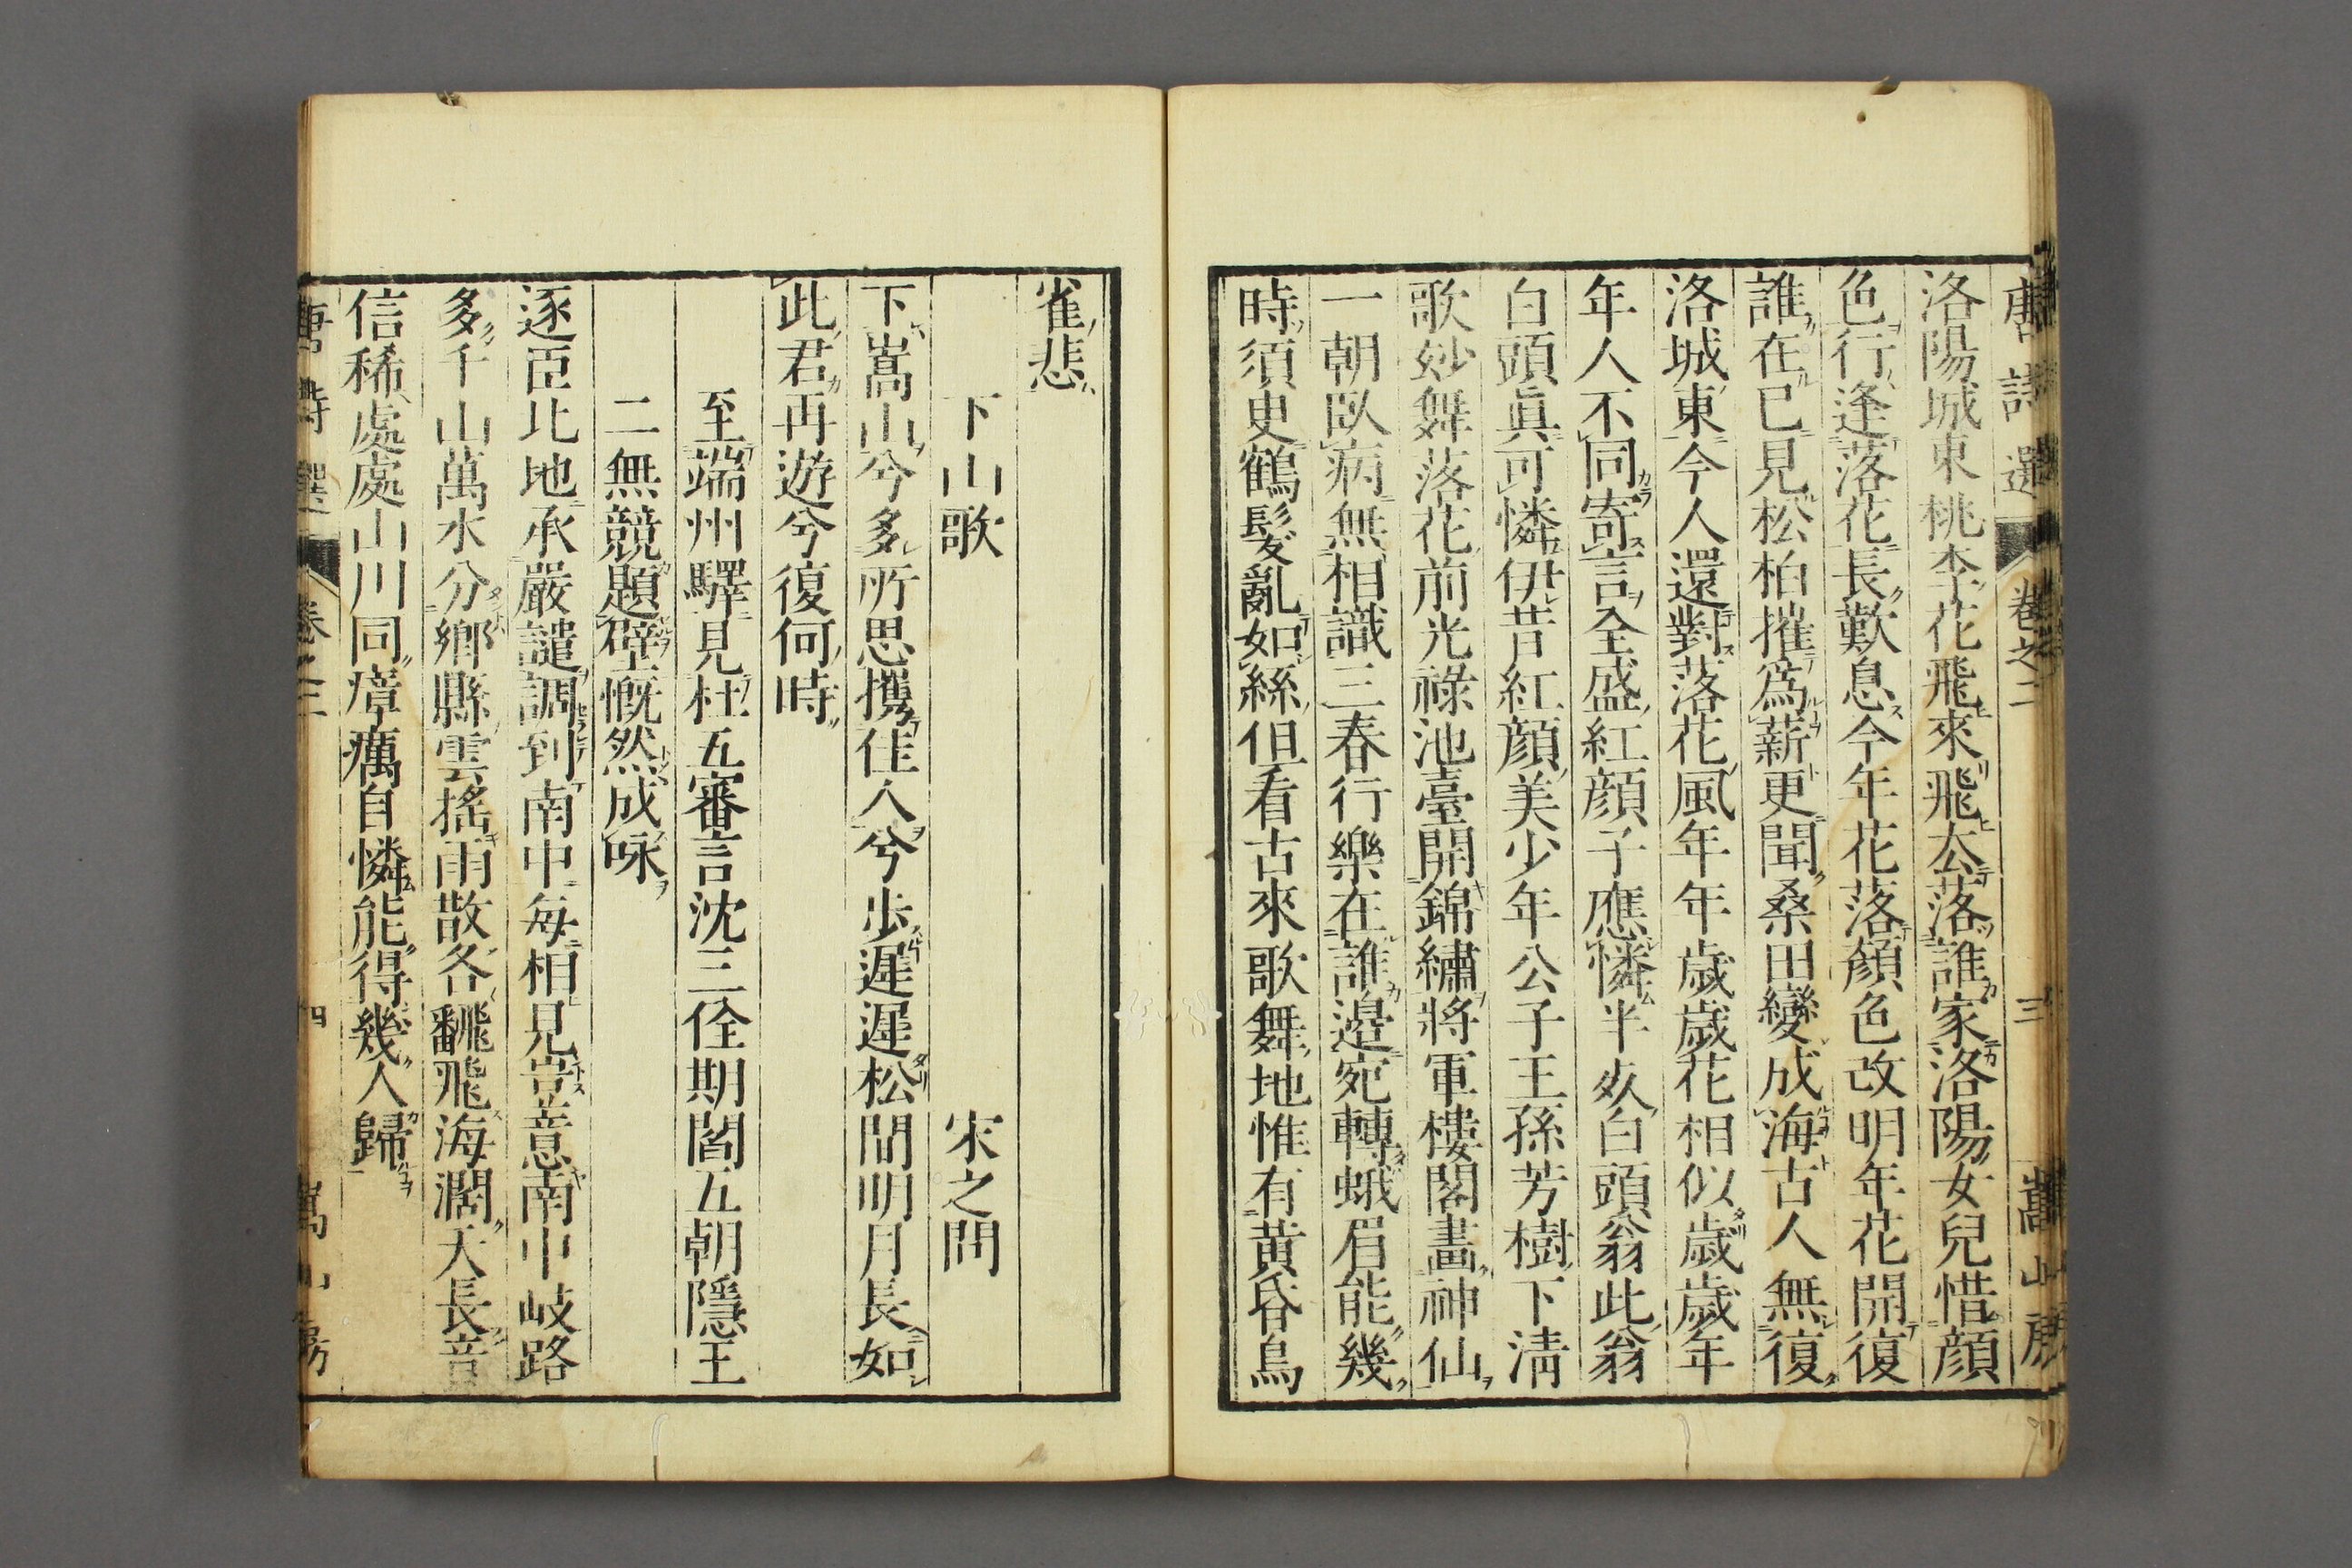 唐詩選 卷之二 三 嵩山房
洛陽城東桃李花飛來飛去落誰家洛陽女兒惜顔
色行逢落花長歎息今年花落顔色改明年花開復
誰在已見松柏摧爲薪更聞桑田變成海古人無復
洛城東今人還對落花風年年歲歲花相似歲歲年
年人不同寄言全盛紅顔子應憐半死白頭翁此翁
白頭眞可憐伊昔紅顔美少年公子王孫芳樹下淸
歌妙舞落花前光祿池臺開錦繡將軍樓閣畫神仙
一朝臥病無相識三春行樂在誰邊宛轉蛾眉能幾
時須臾鶴髮亂如絲但看古來歌舞地惟有黃昏鳥
雀悲
下山歌 宋之問
下嵩山兮多所思攜佳人兮步遲遲松間明月長如
此君再遊兮復何時
至端州驛見杜五審言沈三佺期閻五朝隱王
二無競題壁慨然成咏
逐臣北地承嚴譴調到南中每相見豈意南中岐路
多千山萬水分鄉縣雲搖雨散各翻飛海濶天長音
信稀處處山川同瘴癘自憐能得幾人歸
唐詩選 卷之二 四 嵩山房